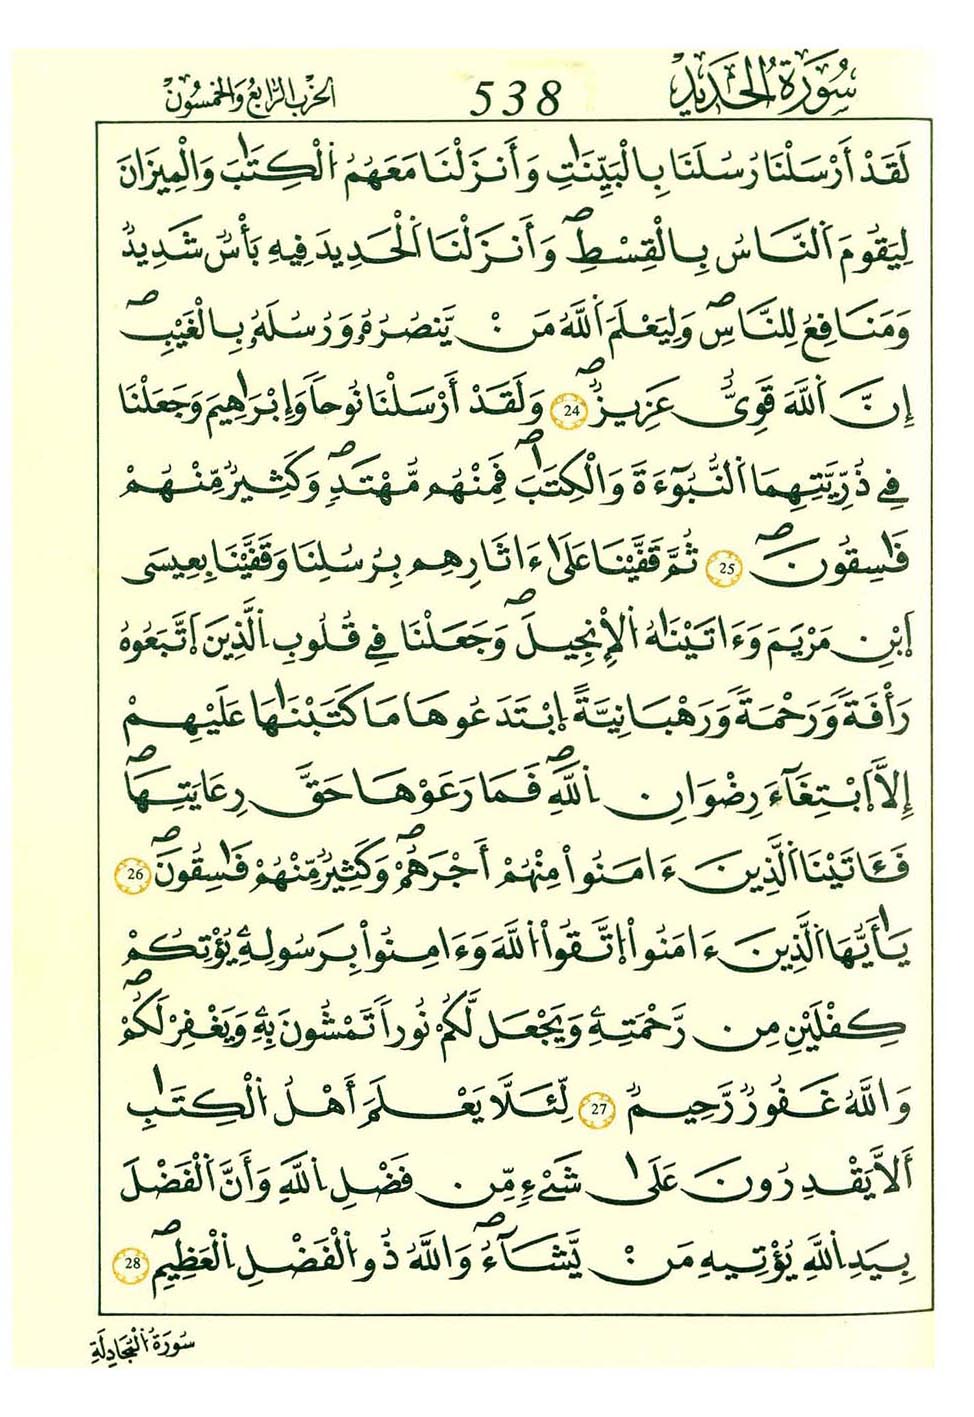 سُورَةُ الْحَدِيدِ
538
الحزب الرابع والخمسون
لَقَدْ أَرْسَلْنَا رُسُلَنَا بِالْبَيِّنَٰتِ وَأَنزَلْنَا مَعَهُمُ اَلْكِتَٰبَ وَالْمِيزَانَ
لِيَقُومَ اَلنَّاسُ بِالْقِسْطِۖ وَأَنزَلْنَا اَلْحَدِيدَ فِيهِ بَأْسٞ شَدِيدٞ
وَمَنَافِعُ لِلنَّاسِۖ وَلِيَعْلَمَ اَللَّهُ مَنْ يَّنصُرُهُۥ وَرُسُلَهُۥ بِالْغَيْبِۖ
إِنَّ اَللَّهَ قَوِيٌّ عَزِيزٞۖ 24 وَلَقَدْ أَرْسَلْنَا نُوحاٗ وَإِبْرَٰهِيمَ وَجَعَلْنَا
فِي ذُرِّيَّتِهِمَا اَلنُّبُوٓءَةَ وَالْكِتَٰبَۖ فَمِنْهُم مُّهْتَدٖۖ وَكَثِيرٞ مِّنْهُمْ
فَٰسِقُونَۖ 25 ثُمَّ قَفَّيْنَا عَلَىٰ ءَاثَٰرِهِم بِرُسُلِنَا وَقَفَّيْنَا بِعِيسَى
اَبْنِ مَرْيَمَ وَءَاتَيْنَٰهُ اُلْإِنجِيلَۖ وَجَعَلْنَا فِي قُلُوبِ اِلَّذِينَ اَتَّبَعُوهُ
رَأْفَةٗ وَرَحْمَةٗ وَرَهْبَانِيَّةً اِبْتَدَعُوهَا مَا كَتَبْنَٰهَا عَلَيْهِمْ
إِلَّا اَبْتِغَآءَ رِضْوَانِ اِللَّهِۖ فَمَا رَعَوْهَا حَقَّ رِعَايَتِهَاۖ
فَـَٔاتَيْنَا اَلَّذِينَ ءَامَنُواْ مِنْهُمْ أَجْرَهُمْۖ وَكَثِيرٞ مِّنْهُمْ فَٰسِقُونَۖ 26
يَٰأَيُّهَا اَلَّذِينَ ءَامَنُواْ اُتَّقُواْ اُللَّهَ وَءَامِنُواْ بِرَسُولِهِۦ يُؤْتِكُمْ
كِفْلَيْنِ مِن رَّحْمَتِهِۦ وَيَجْعَل لَّكُمْ نُوراٗ تَمْشُونَ بِهِۦ وَيَغْفِرْ لَكُمْۖ
وَاللَّهُ غَفُورٞ رَّحِيمٞ 27 لِّئَلَّا يَعْلَمَ أَهْلُ اُلْكِتَٰبِ
أَلَّا يَقْدِرُونَ عَلَىٰ شَيْءٖ مِّن فَضْلِ اِللَّهِ وَأَنَّ اَلْفَضْلَ
بِيَدِ اِللَّهِ يُؤْتِيهِ مَنْ يَّشَآءُۖ وَاللَّهُ ذُو اُلْفَضْلِ اِلْعَظِيمِۖ 28
سُورَةُ اُلْمُجَادِلَةِ